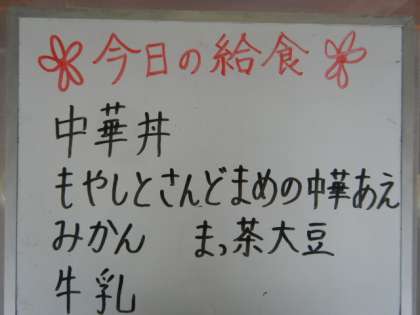 今日の給食
中華丼
もやしとさんどまめの中華あえ
みかん まっ茶大豆
牛乳